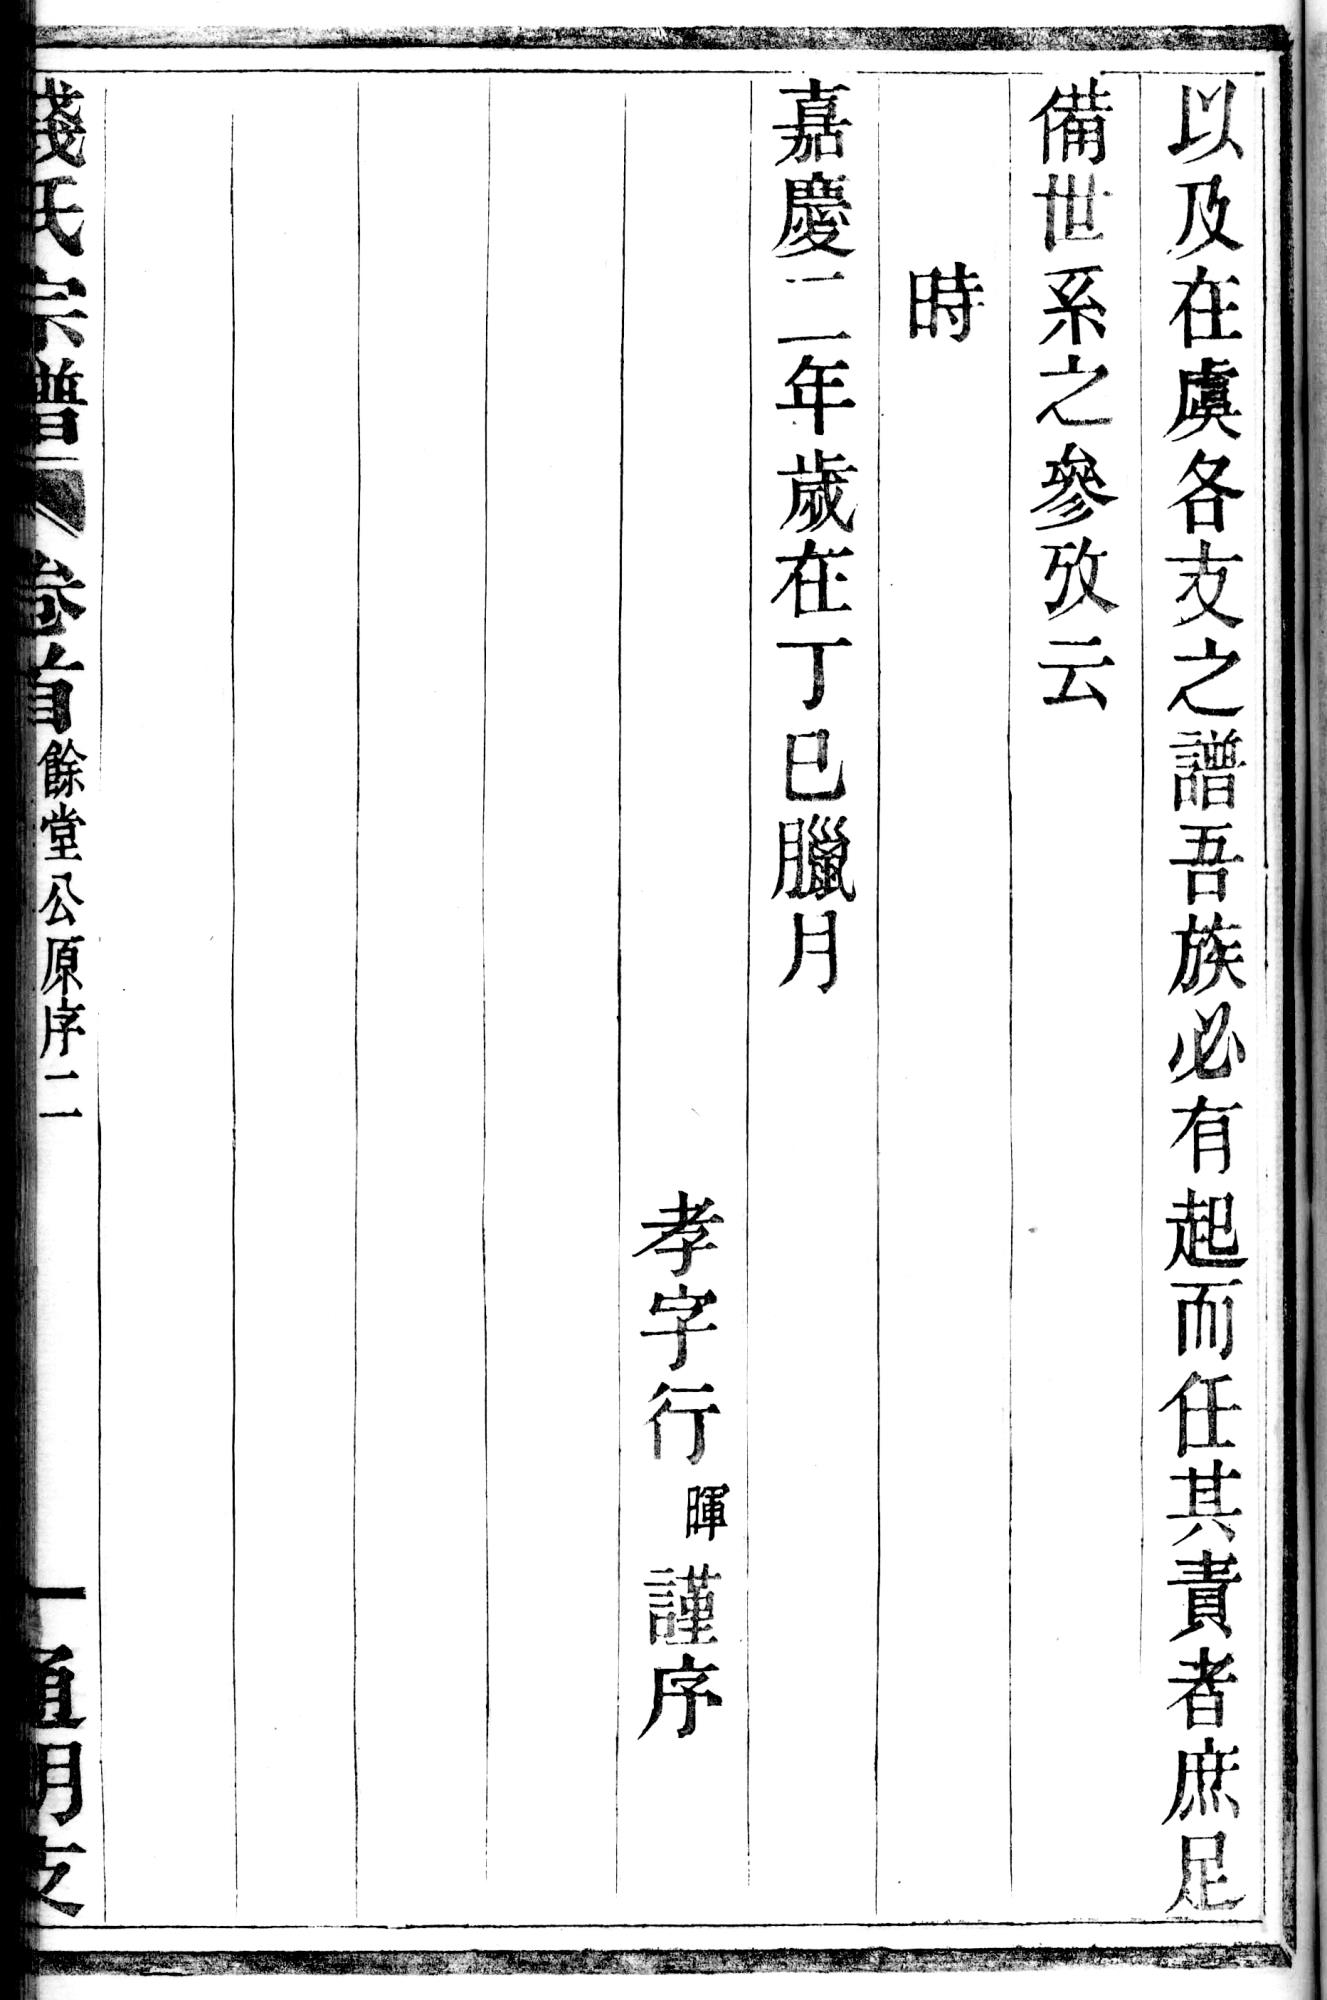 以及在虞各支之譜吾族必有起而任其責者庶足
備世系之參攷云
時
嘉慶二年歲在丁巳臘月
孝字行暉謹序
錢氏宗譜 卷首 餘堂公原序二 一 通明支